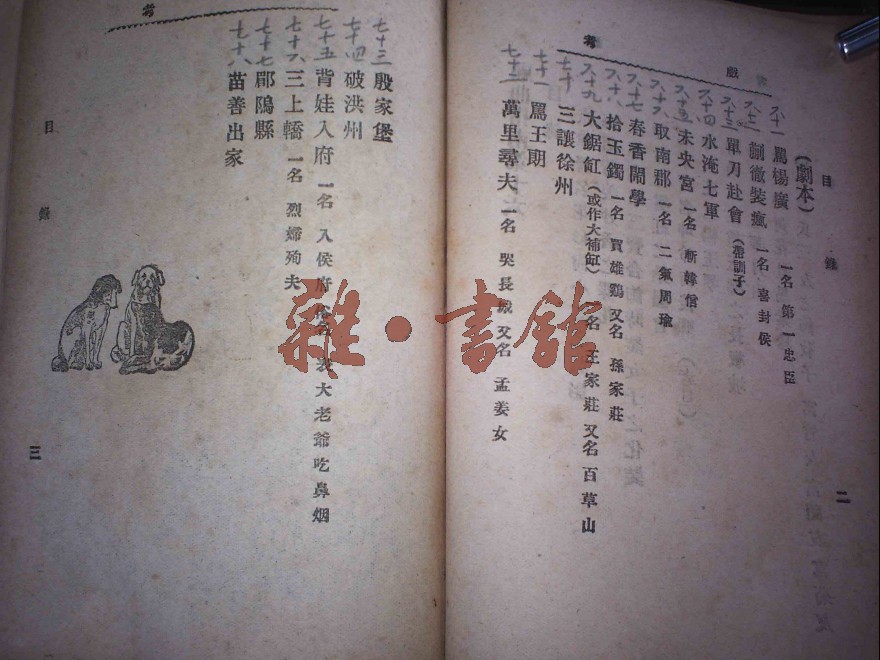 戲
考
目錄
二
(劇本)
六十一 罵楊廣 一名 第一忠臣
六十二 蒯徹裝瘋 一名 喜封侯
六十三 單刀赴會 (帶訓子)
六十四 水淹七軍
六十五 未央宮 一名 斬韓信
六十六 取南郡 一名 二氣周瑜
六十七 春香鬧學
六十八 拾玉鐲 一名 買雄鷄 又名 孫家莊
六十九 大鋸缸 (或作大補缸) 一名 王家莊 又名 百草山
七十 三讓徐州
七十一 罵王朗
七十二 萬里尋夫 一名 哭長城 又名 孟姜女
考
目錄
三
七十三 殷家堡
七十四 破洪州
七十五 背娃入府 一名 入侯府 俗名 表大老爺吃鼻烟
七十六 三上轎 一名 烈婦殉夫
七十七 郿鄔縣
七十八 苗善出家
雜·書館